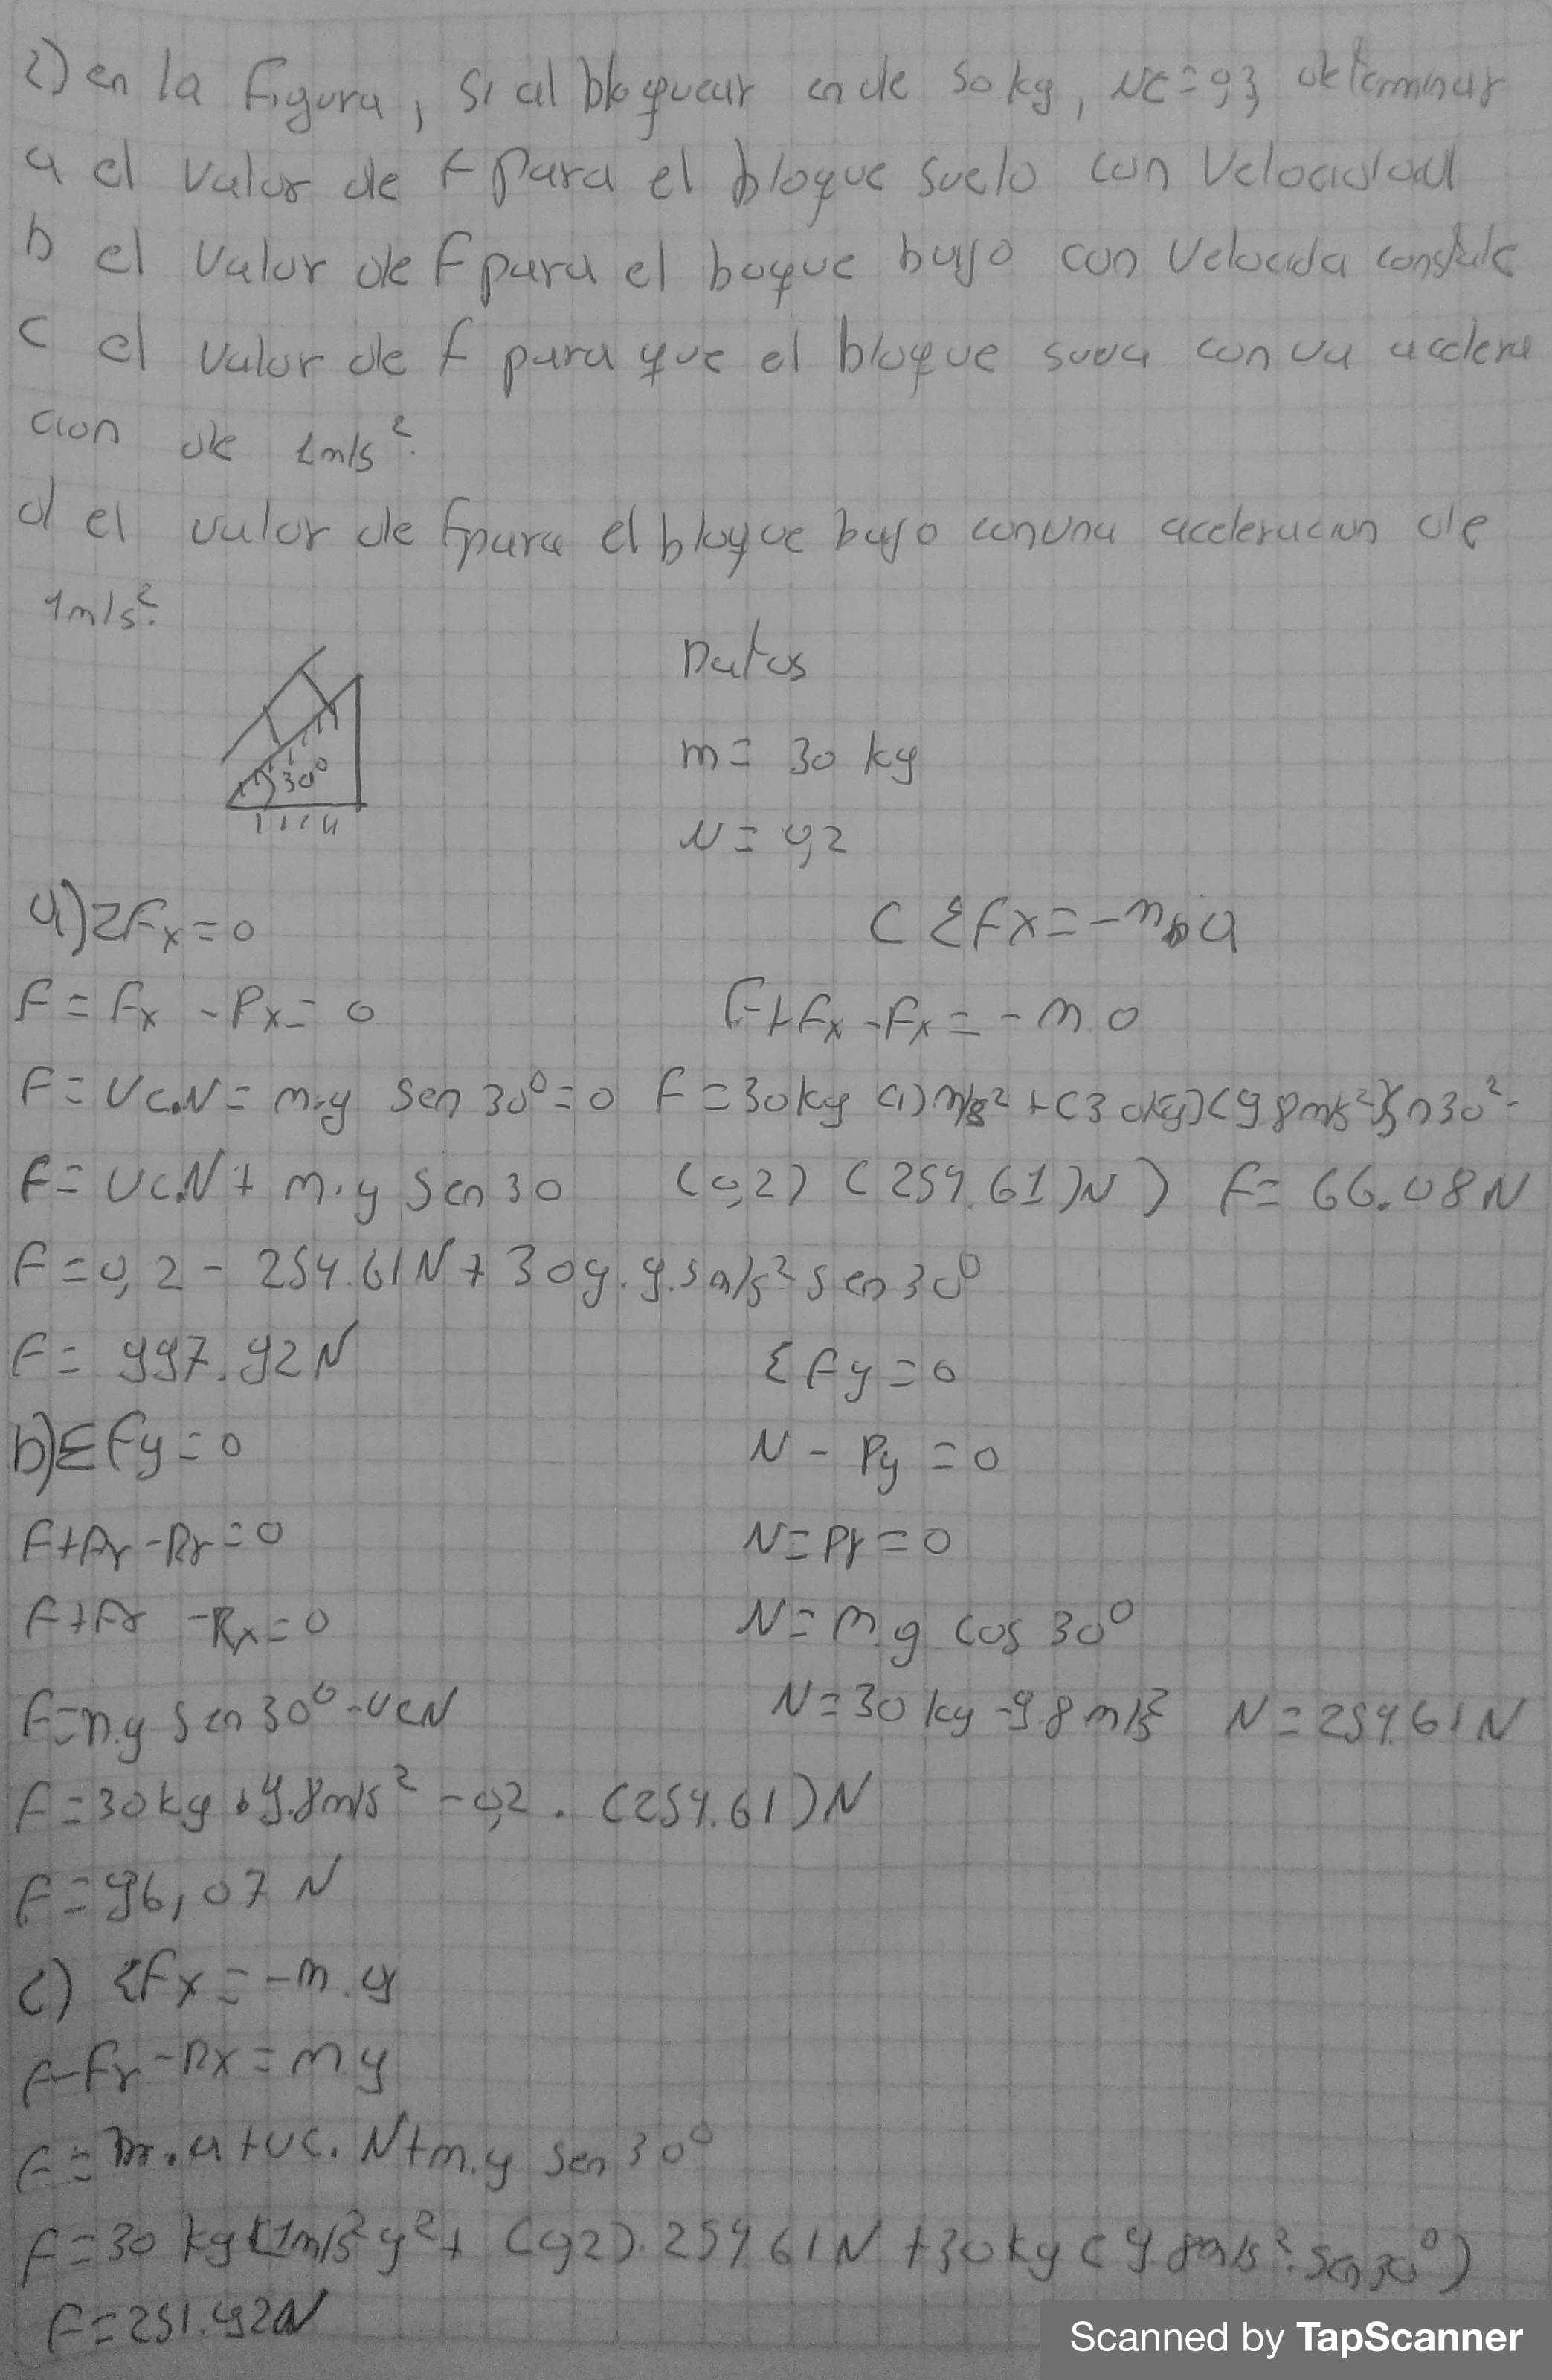 2) en la figura, si al bloquear en de 50 kg, Nc = 0,3 determinar
a el valor de F para el bloque suelo con Velocidad
b el valor de F para el boque bajo con Velocida constate
c el valor de f para que el bloque suva con ua acelera
cion de 1m/s².
d el valor de F para el bloque bajo con una aceleracion de
1m/s².
30°
Datos
m = 30 kg
N = 0,2
a) ΣFx = 0
F = Fx - Px = 0
F = Uc.N = m.g Sen 30° = 0
F = Uc.N + m.g Sen 30
F = 0,2 - 254.61N + 30g. 9.5m/s² sen 30°
F = 997.92N
b) ΣFy = 0
F + Fr - Rr = 0
F + Fr - Rx = 0
F = n.g Sen 30° - UcN
F = 30kg . 9.8m/s² - 0,2 . (254.61)N
F = 96,07 N
c) ΣFx = -m.g
F - Fr - Rx = m.g
F = m.a + Uc. N + m.g Sen 30°
F = 30 kg (1m/s² g² + (0,2). 254.61N + 30kg (9.8m/s². Sen 30°)
F = 251.92N
C ΣFx = - m a
F + Fx - Fx = - m.0
F = 30kg (1) m/s² + (30kg) (9.8m/s²) Sn 30² -
(0,2) (254.61)N) F = 66.08N
ΣFy = 0
N - Py = 0
N = Pr = 0
N = m.g cos 30°
N = 30 kg - 9.8 m/s² N = 254.61N
Scanned by TapScanner